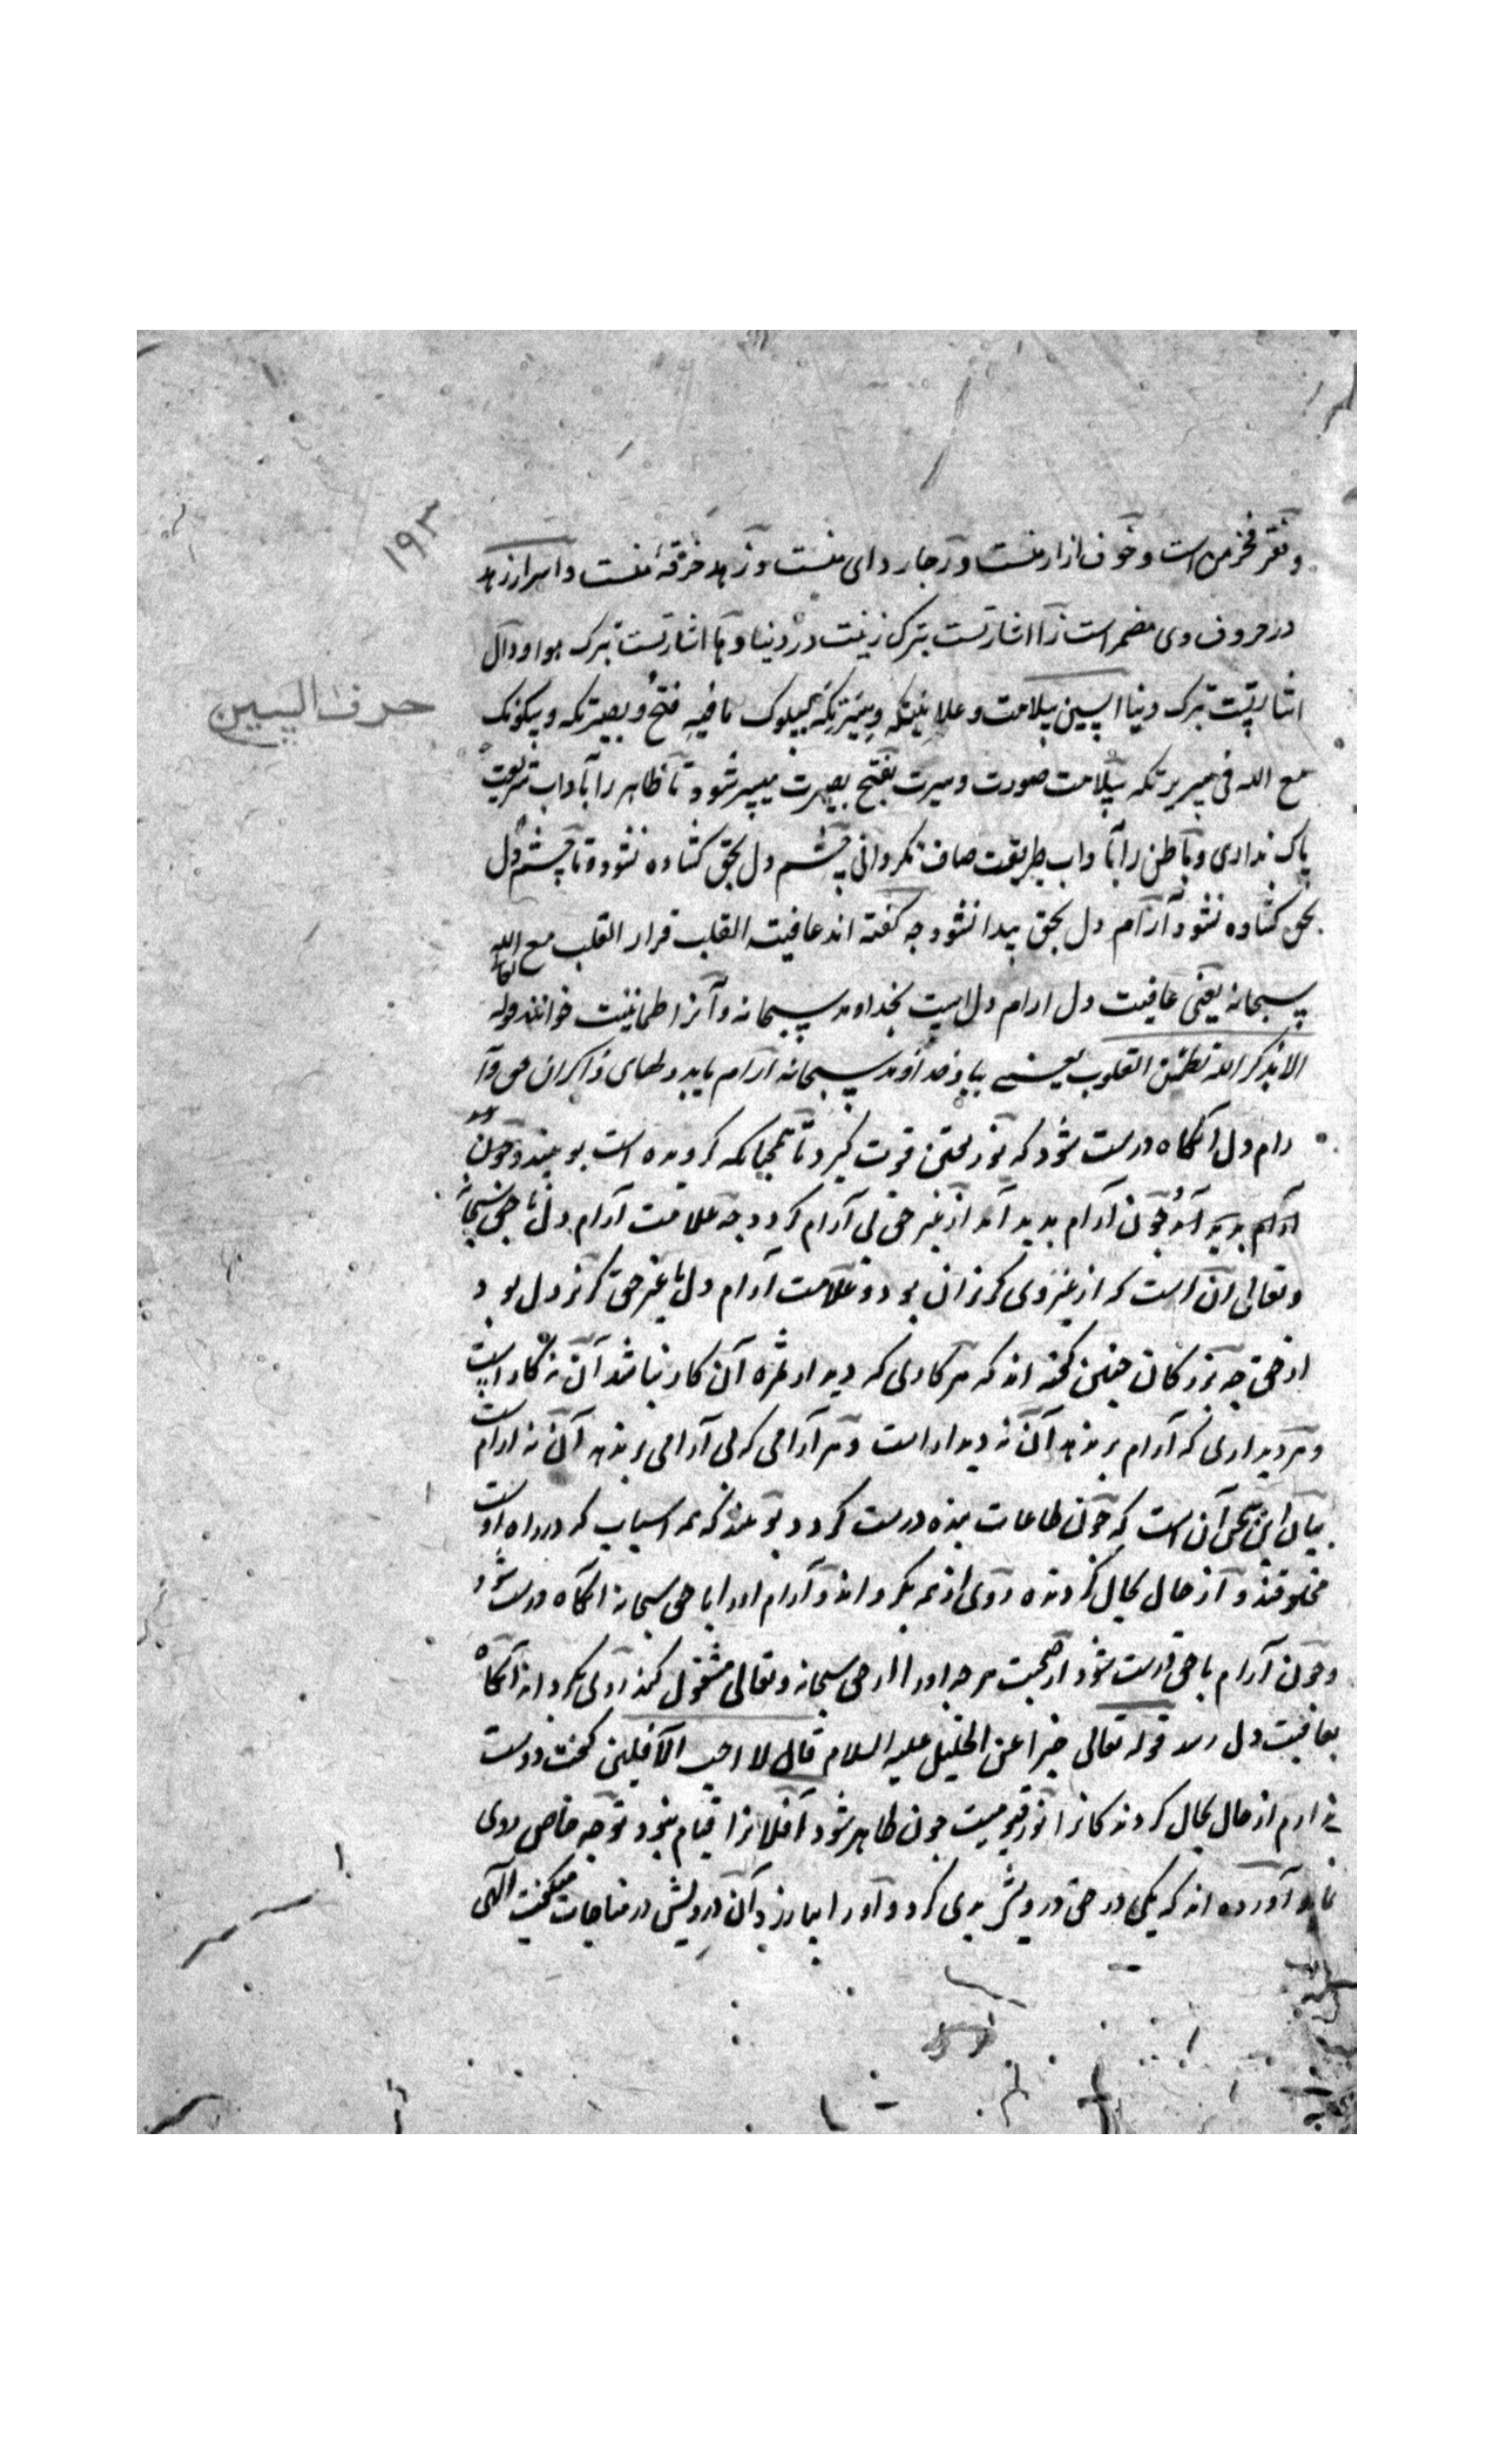 ۱۹۳
و فقر فخر من است و خوف ازار منست و رجا ردای منست و زهد خرقهٔ منست و اسرار زهد
در حروف وی مضمر است زا اشارتست بترک زینت در دنیا و ها اشارتست بترک هوا و دال
اشارتست بترک دنیا السین سلامت و علانیتک و سیرتک بسلوک ما فیه فتح بصیرتک و سکونک
حرف السین
مع الله فی سریرتک سلامت صورت و سیرت بفتح بصیرت میسر شود تا ظاهر را بآداب شریعت
پاک نداری و باطن را بآداب طریقت صاف نگردانی چشم دل بحق گشاده نشود و تا چشم دل
بحق گشاده نشود آرام دل بحق پیدا نشود چه گفته اند عافیت القلب قرار القلب مع الله تعالی
سبحانه یعنی عافیت دل ارام دل است بخداوند سبحانه و آنرا طمانینت خوانند قوله
الا بذکر الله تطمئن القلوب یعنی بیاد خداوند سبحانه آرام یابد دلهای ذاکران حق و آ
رام دل انگاه درست شود که نور یقین قوت گیرد تا بهمچنانکه گرونده است بو بیننده و چون
آرام پدید آید و چون آرام پدید آمد از غیر حق بی آرام گردد چه علامت آرام دل با حق سبحانه
و تعالی آن است که از غیر وی گریزان بود و علامت آرام دل با غیر حق گریز دل بود
از حق چه بزرگان چنین گفته اند که هر کاری که دیدار ثمره آن کار نباشد آن نه کار است
و هر دیداری که آرام بر ندهد آن نه دیدار است و هر آرامی که بی آرامی بر ندهد آن نه ارام است
بیان این سخن آن است که چون طاعات بنده درست گردد بو بیند که همه اسباب که در راه او است
مخلوقند و از حال بحال گردنده روی از همه بگرداند و آرام او را با حق سبحانه انگاه درست شود
و چون آرام با حق درست شود از صحبت هر چه او را از حق سبحانه و تعالی مشغول کند روی بگرداند انگاه
بعافیت دل رسد قوله تعالی خبرا عن الخلیل علیه السلام قال لا احب الآفلین گفت دوست
ندارم از حال بحال گردندکانرا نور قیومیت چون ظاهر شود آفلانرا قیام نبود توجه خاص روی
نماید آورده اند که یکی در حق درویش بدی کرد و او را بیازرد آن درویش در مناجات میگفت الهی